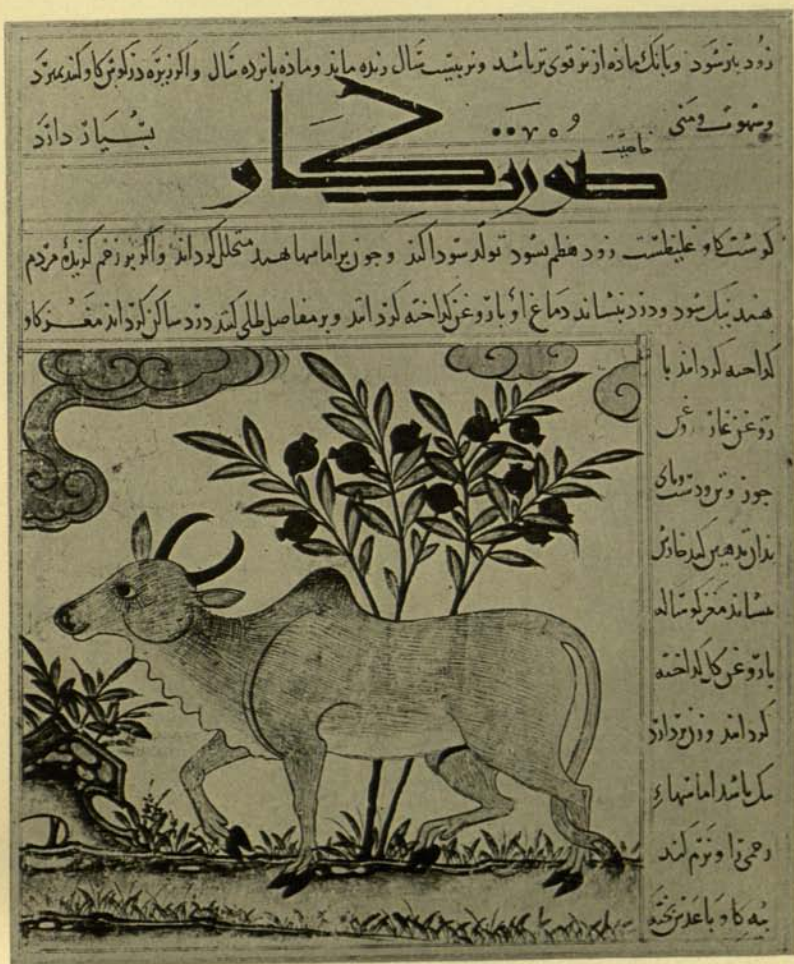 زود پیر شود و بانک ماده از نر قوی تر باشد و نر بیست سال زنده ماند و ماده بانزده سال و اکر زیره در کوش کاو کنند بمیرد
و شهوت و منی بسیار دارد
خاصیت
صورت کاو
کوشت کاو غلیظست زود هظم نشود تولد سودا کند و جون بر اماسها نهند متحلل کرداند و اکر بر زخم کزیدۀ مردم
نهند نیک شود و درد بنشاند دماغ او با روغن کداخته کرداند و بر مفاصل طلی کنند درد ساکن کرداند مغز کاو
کداخته کردانند با
روغن
جوز و بر دست و پای
بدان تدهین کنند خارش
بنشاند مغز کوساله
با روغن کل کداخته
کردانند و زن بردارد
نیک باشد اماسهاء
رحمی را و نرم کند
پیه کاو با